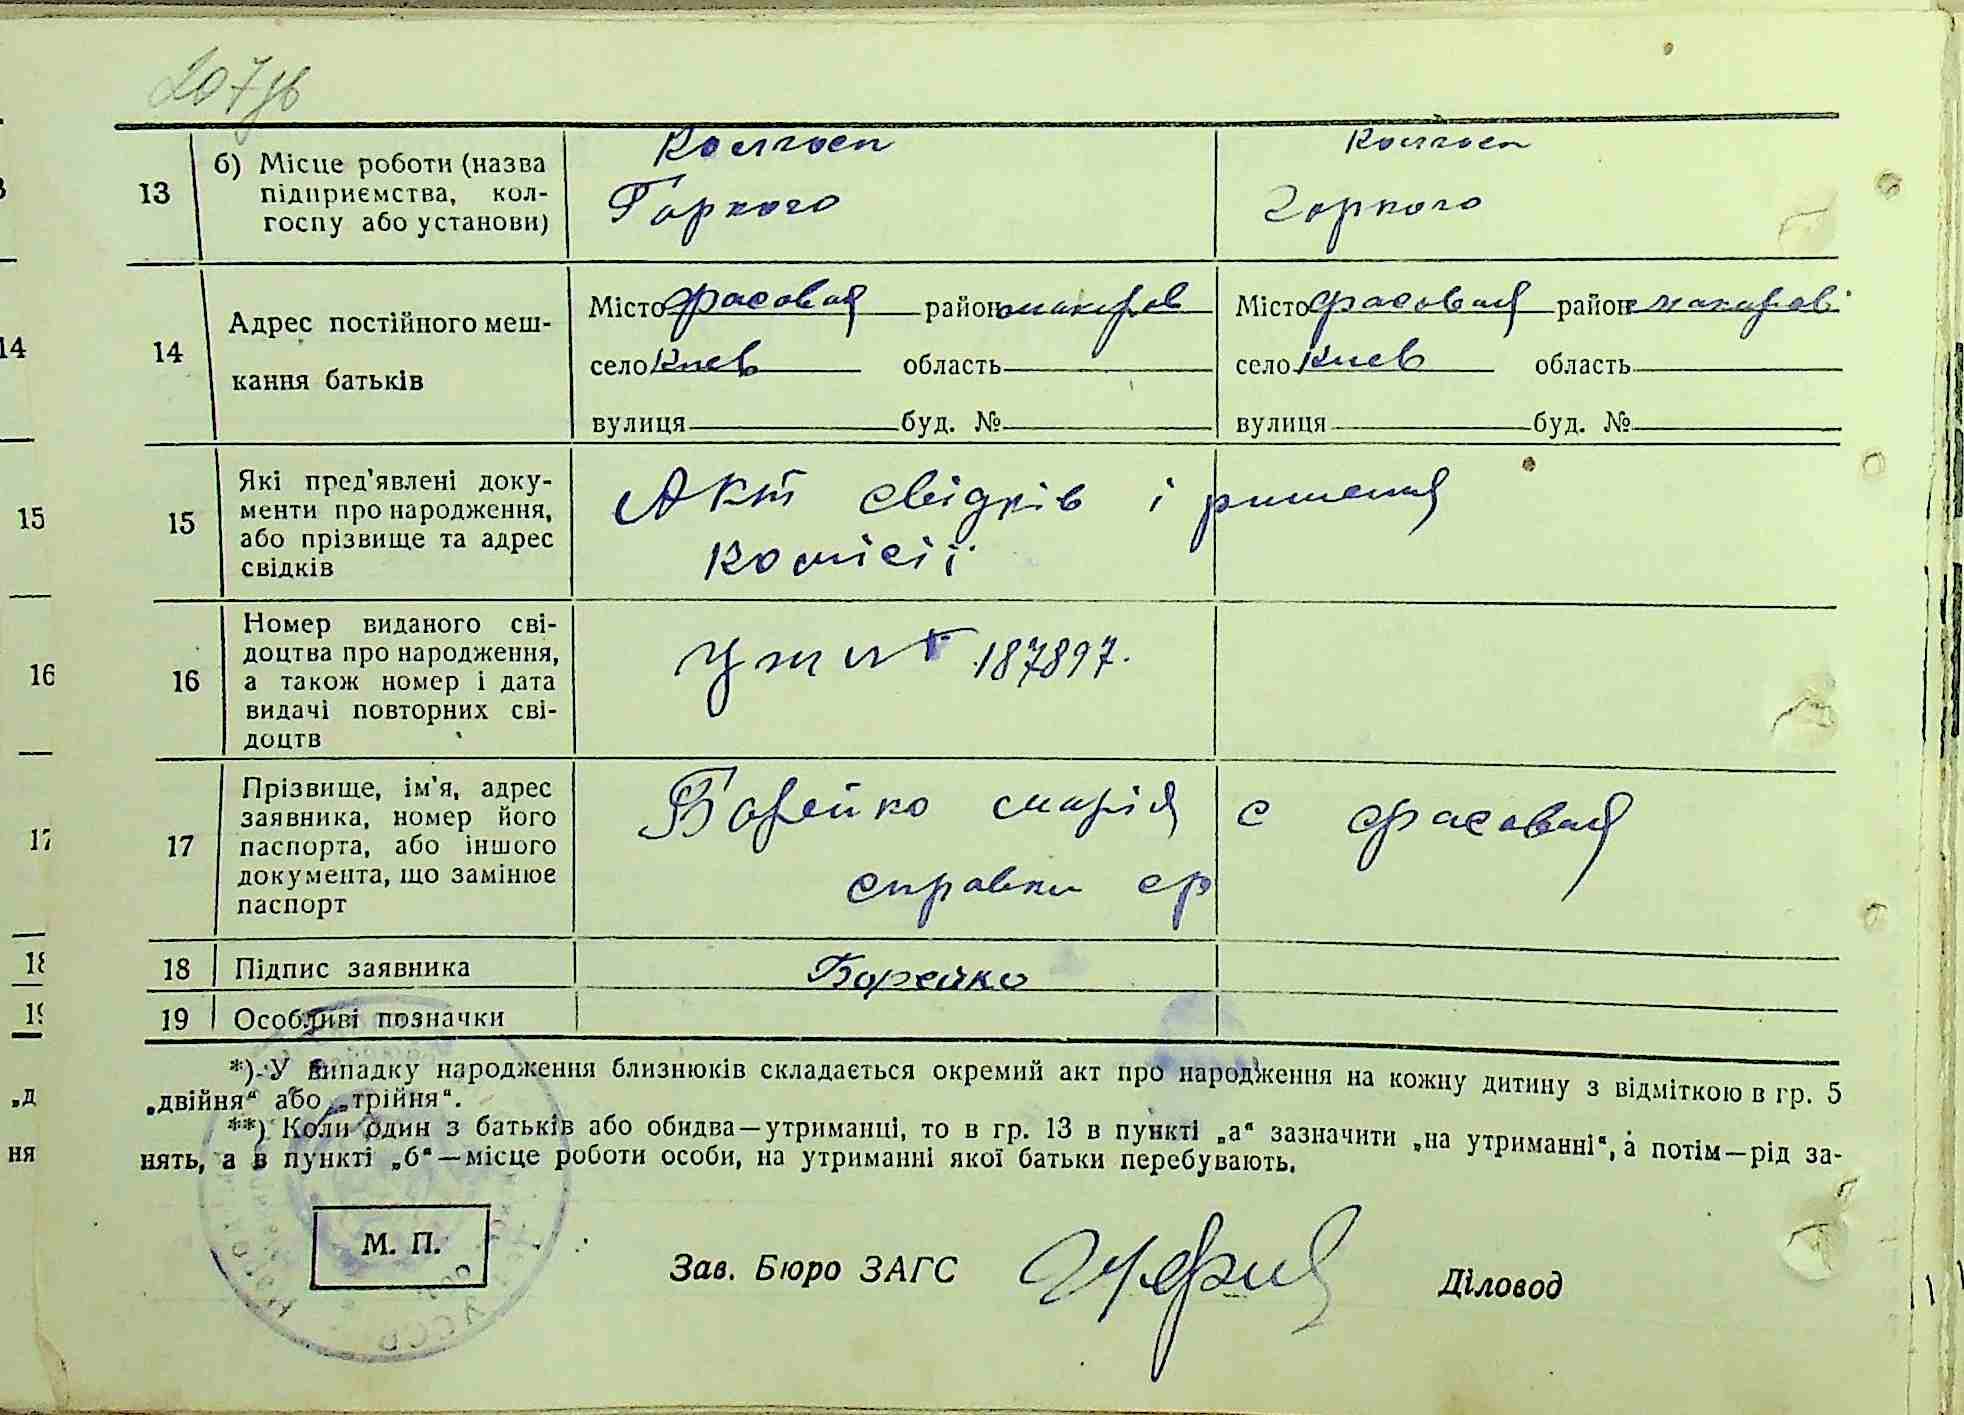 207зв
13
б) Місце роботи (назва
підприємства, кол-
госпу або установи)
Колгосп
Горкого
Колгосп
Горкого
14
Адрес постійного меш-
кання батьків
Місто Фасовая район макаров
село Киев область
вулиця буд. №
Місто Фасовая район макарові
село Киев область
вулиця буд. №
15
Які пред'явлені доку-
менти про народження,
або прізвище та адрес
свідків
Акт свідків і ришення
комісії
16
Номер виданого сві-
доцтва про народження,
а також номер і дата
видачі повторних сві-
доцтв
187897.
17
Прізвище, ім'я, адрес
заявника, номер його
паспорта, або іншого
документа, що замінює
паспорт
Борейко марія с Фасовая
справки ср
18
Підпис заявника
Борейко
19
Особливі позначки
*) У випадку народження близнюків складається окремий акт про народження на кожну дитину з відміткою в гр. 5
„двійня“ або „трійня“.
**) Коли один з батьків або обидва—утриманці, то в гр. 13 в пункті „а“ зазначити „на утриманні“, а потім—рід за-
нять, а в пункті „б“—місце роботи особи, на утриманні якої батьки перебувають.
М. П.
Зав. Бюро ЗАГС
Діловод
14
15
16
17
18
19
„д
ня